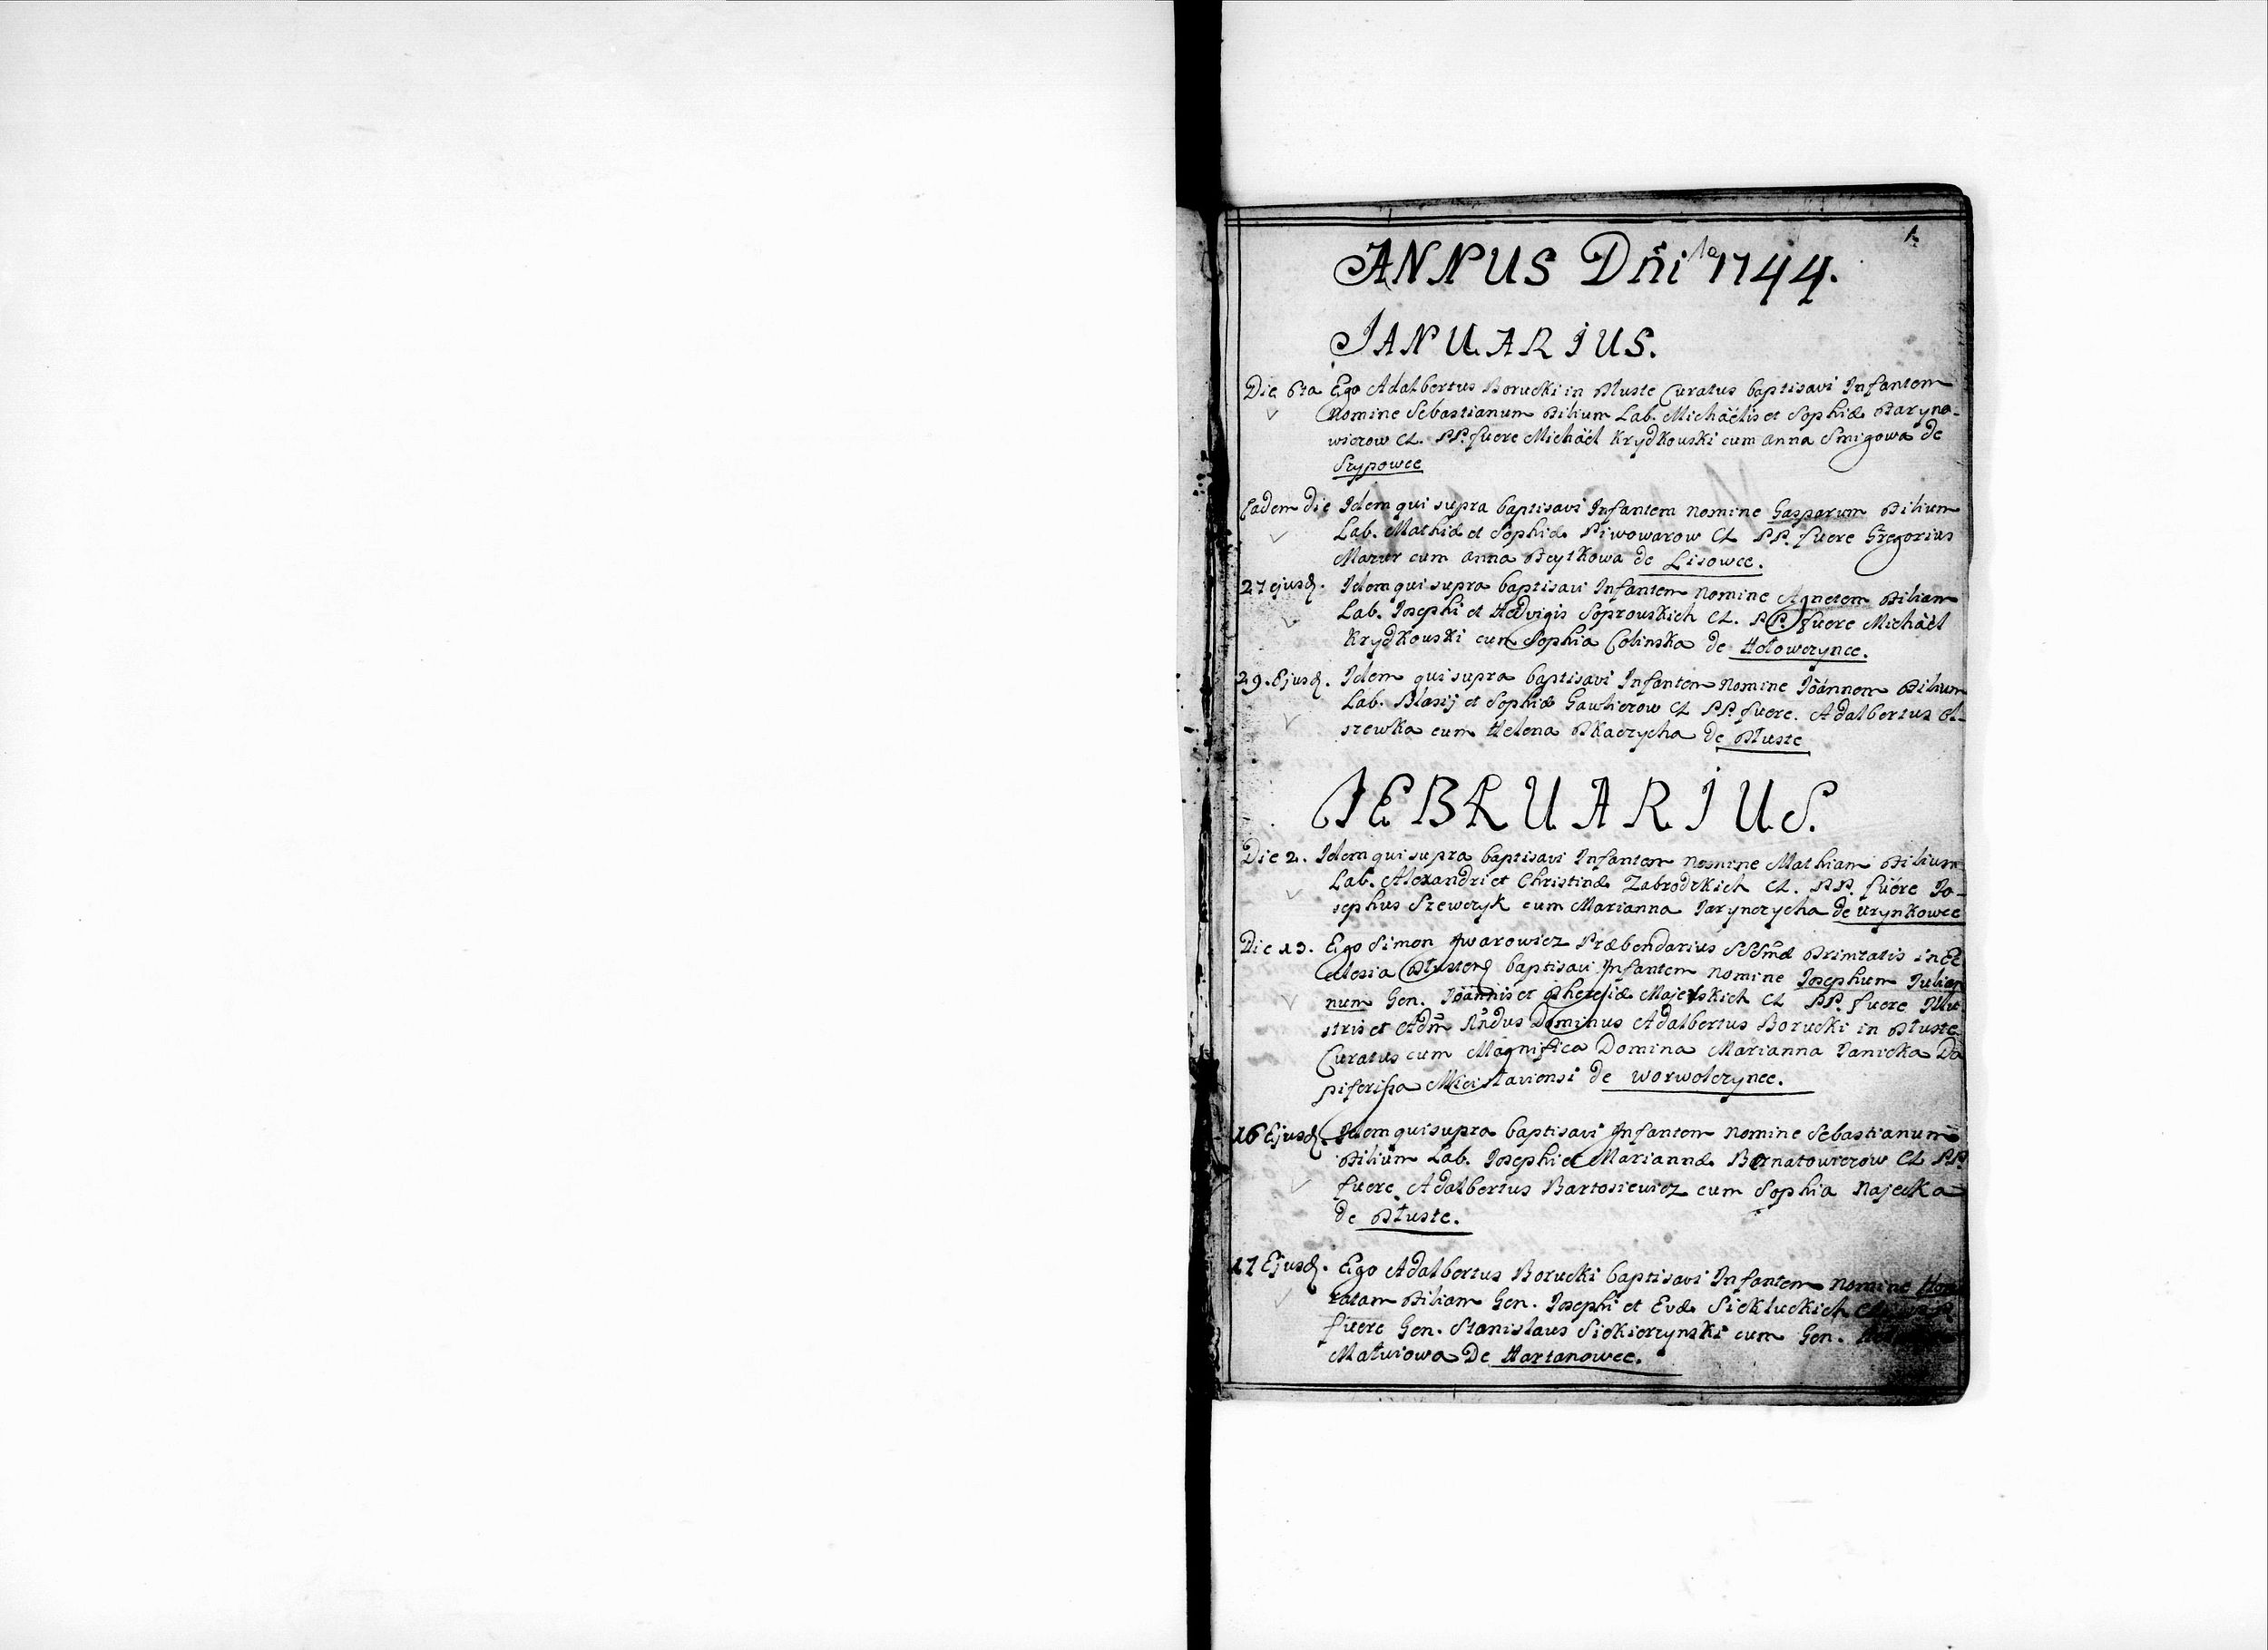 1.
ANNUS Dñi 1744.
JANUARIUS.
Die 6ta Ego Adalbertus Borucki in Tłuste Curatus baptisavi Infantem
Nomine Sebastianum Filium Lab. Michaëlis et Sophiæ Taryno-
wiczow CL. PP. fuere Michaël Krydkouski cum Anna Smigowa de
Szypowce
Eadem die Idem qui supra baptisavi Infantem nomine Gasparum Filium
Lab. Mathiæ et Sophiæ Piwowarow CL PP. fuere Gregorius
Mazur cum Anna Feytkowa de Lisowce.
27 ejusd. Idem qui supra baptisavi Infantem Nomine Agnetem Filiam
Lab. Josephi et Hedvigis Soprouskich CL. PP. fuere Michaël
Krydkouski cum Sophia Colinska de Hołowczynce.
29. Ejusd. Idem qui supra baptisavi Infantem Nomine Joannem Filium
Lab. Blasij et Sophiæ Gawlierow CL PP. fuere. Adalbertus Ol-
szewka cum Helena Tkaczycha de Tłuste
FEBRUARIUS.
Die 2. Idem qui supra baptisavi Infantem nomine Mathiam Filium
Lab. Alexandri et Christinæ Zabrodzkich CL. PP. fuere Jo-
sephus Szewczyk cum Marianna Jarynczycha de Urynkowce
Die 13. Ego Simon Jwarowicz Præbendarius SSSmæ Trinitatis in Ec
clesia Tłustens baptisavi Infantem nomine Josephum Julian
num Gen. Joannis et Theresiæ Majewskich CL PP. fuere Illu-
stris et Adm Rndus Dominus Adalbertus Borucki in Tłuste
Curatus cum Magnifica Domina Marianna Janicka Da
piferissa Mcistaviensi de Worwolczynce.
16 Ejusd. Idem qui supra baptisavi Infantem Nomine Sebastianum
Filium Lab. Josephi et Mariannæ Bernatowiczow CL PP.
fuere Adalbertus Bartosiewicz cum Sophia Najecka
de Tłuste.
17 Ejusd. Ego Adalbertus Borucki baptisavi Infantem Nomine Hono
ratam Filiam Gen. Josephi et Evæ Siekluckich
fuere Gen. Stanislaus Siekierzynski cum Gen.
Matwiowa De Hartanowce.